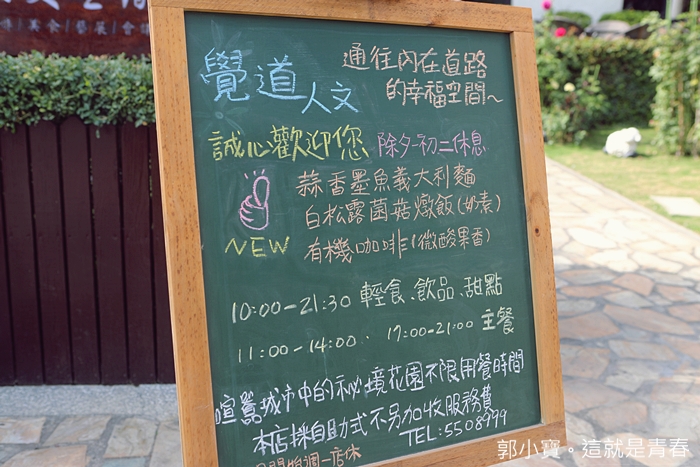 美食/藝展/會議
覺道人文
通往內在道路
的幸福空間~
誠心歡迎您 除夕-初二休息
蒜香墨魚義大利麵
白松露菌菇燉飯(奶素)
NEW 有機咖啡(微酸果香)
10:00-21:30 輕食、飲品、甜點
11:00-14:00、17:00-21:00 主餐
喧囂城市中的秘境花園不限用餐時間
本店採自助式不另加收服務費
TEL:5508999
週一店休
郭小寶。這就是青春